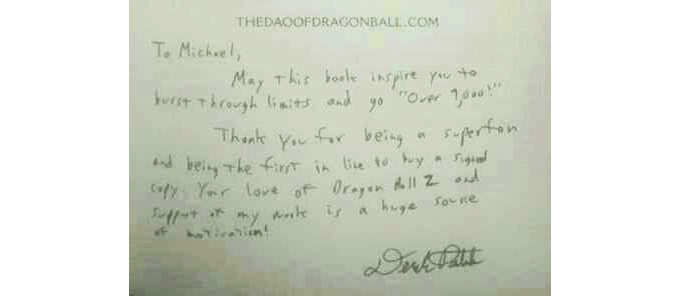 THEDAOOFDRAGONBALL.COM
To Michael,
May this book inspire you to
burst through limits and go "Over 9,000!"
Thank you for being a superfan
and being the first in line to buy a signed
copy. Your love of Dragon Ball Z and
support of my work is a huge source
of motivation!
Derek Padula